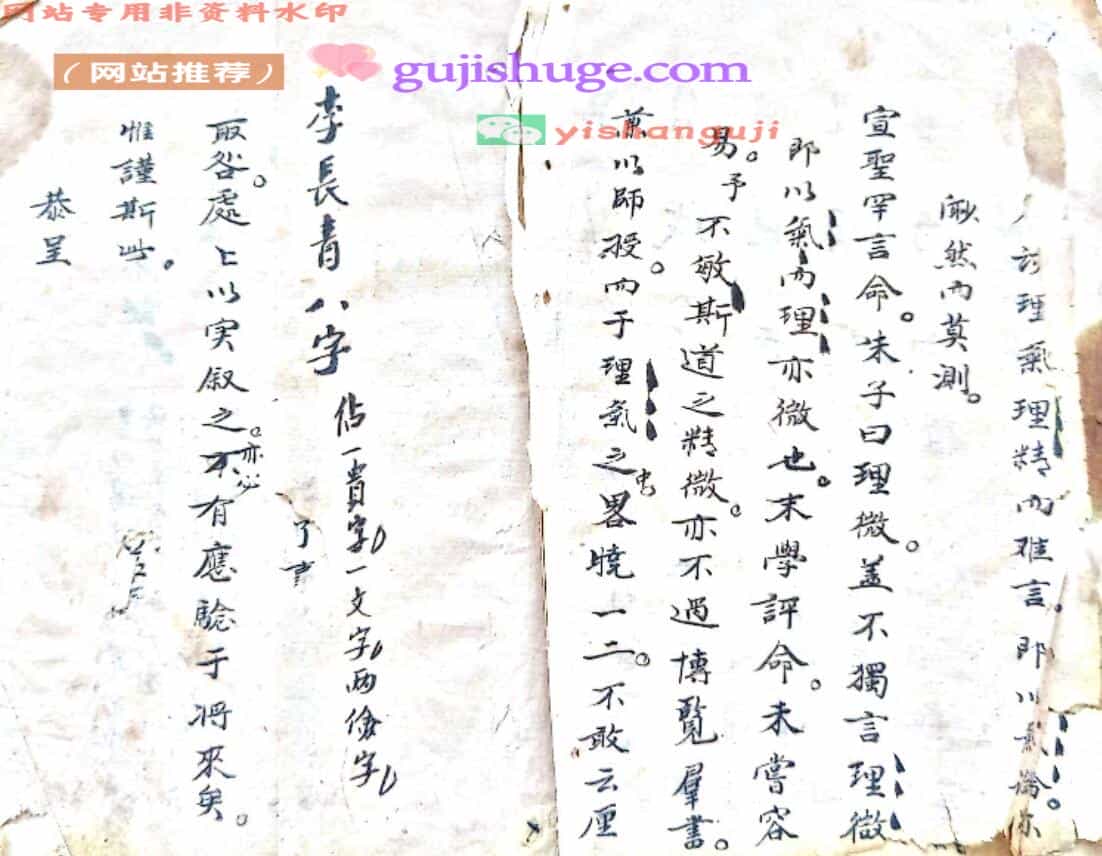 网站专用非资料水印
（网站推荐）
gujishuge.com
yishanguji
理氣理精而难言。即以氣論。亦
渺然而莫測。
宣聖罕言命。朱子曰理微。盖不獨言理微
即以氣而理亦微也。末學評命。未嘗容
易。予不敏斯道之精微。亦不過博覽羣書。
兼以師授。而于理氣之中畧曉一二。不敢云厘
李長青八字
佔一貴字一文字两儉字
了
取咎處上以实叙之。亦必有應驗于将來矣。
惟謹斯此。
恭呈